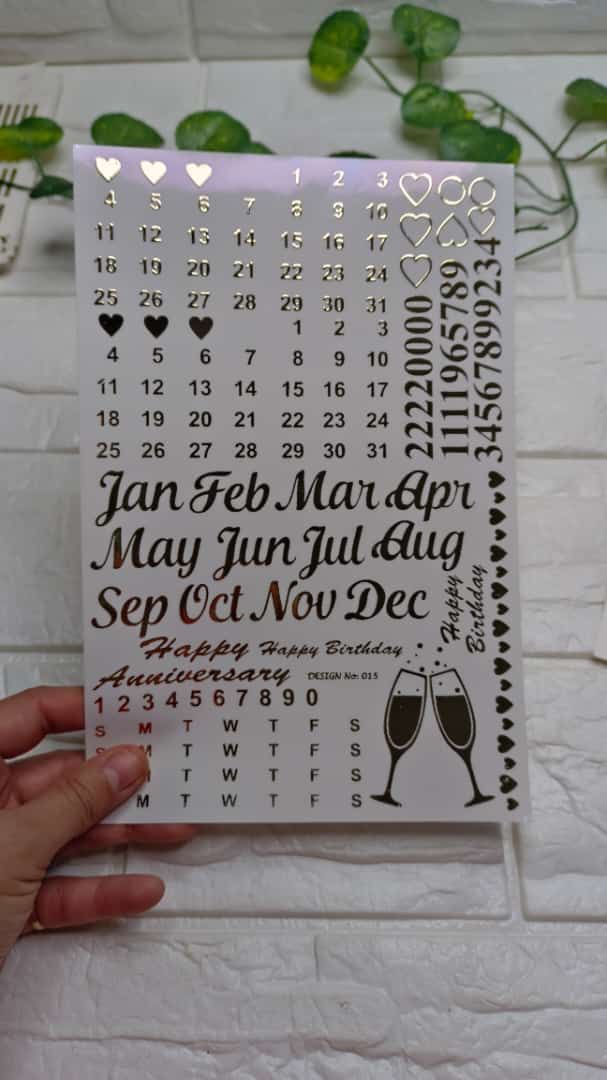 1 2 3
4 5 6 7 8 9 10
11 12 13 14 15 16 17
18 19 20 21 22 23 24
25 26 27 28 29 30 31
1 2 3
4 5 6 7 8 9 10
11 12 13 14 15 16 17
18 19 20 21 22 23 24
25 26 27 28 29 30 31
22220000
1111965789
34567899234
Jan Feb Mar Apr
May Jun Jul Aug
Sep Oct Nov Dec
Happy
Birthday
Happy
Anniversary
Happy Birthday
DESIGN No: 015
1 2 3 4 5 6 7 8 9 0
S M T W T F S
S M T W T F S
M T W T F S
M T W T F S